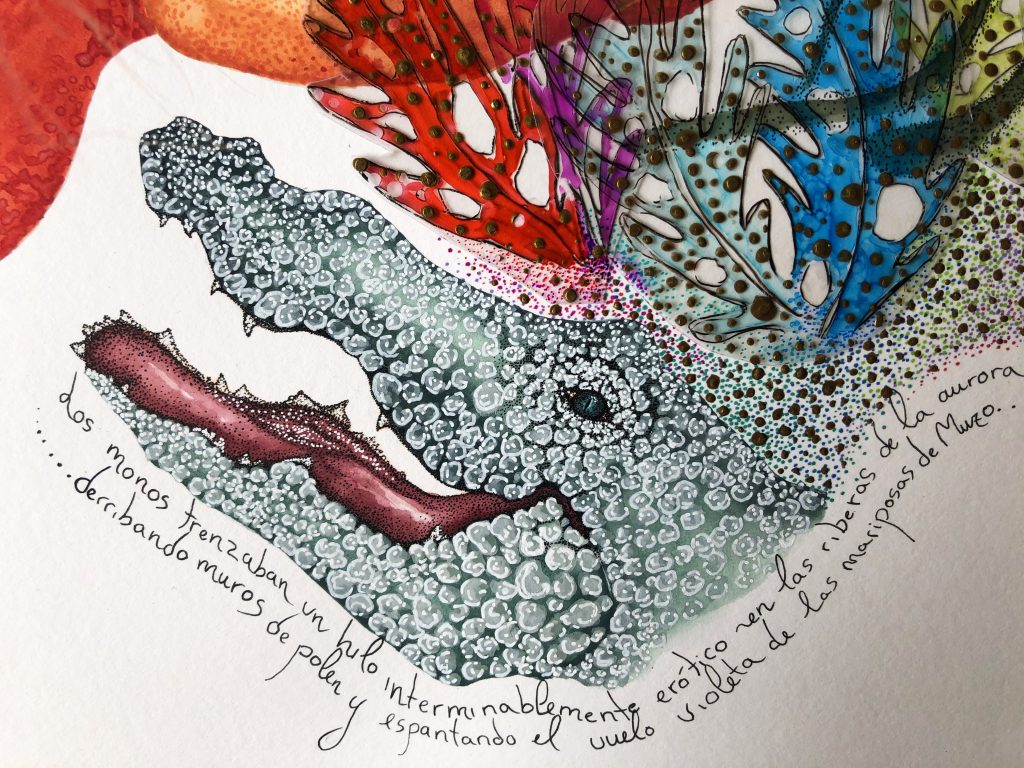 Los monos trenzaban un hilo interminablemente erótico en las riberas de la aurora
......derribando muros de polen y espantando el vuelo violeta de las mariposas de Muzo..